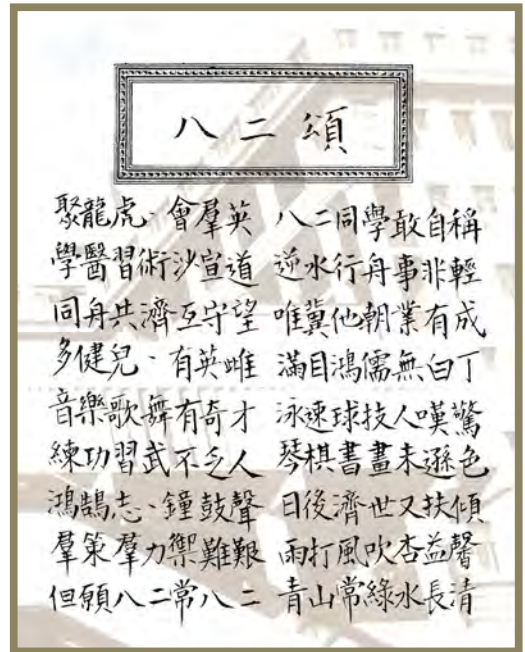 八二頌
聚龍虎、會羣英 八二同學敢自稱
學醫習術沙宣道 逆水行舟事非輕
同舟共濟互守望 唯冀他朝業有成
多健兒、有英雌 滿目鴻儒無白丁
音樂歌舞有奇才 泳速球技人嘆驚
練功習武不乏人 琴棋書畫未遜色
鴻鵠志、鐘鼓聲 日後濟世又扶傾
羣策羣力禦難艱 雨打風吹杏益馨
但願八二常八二 青山常綠水長清